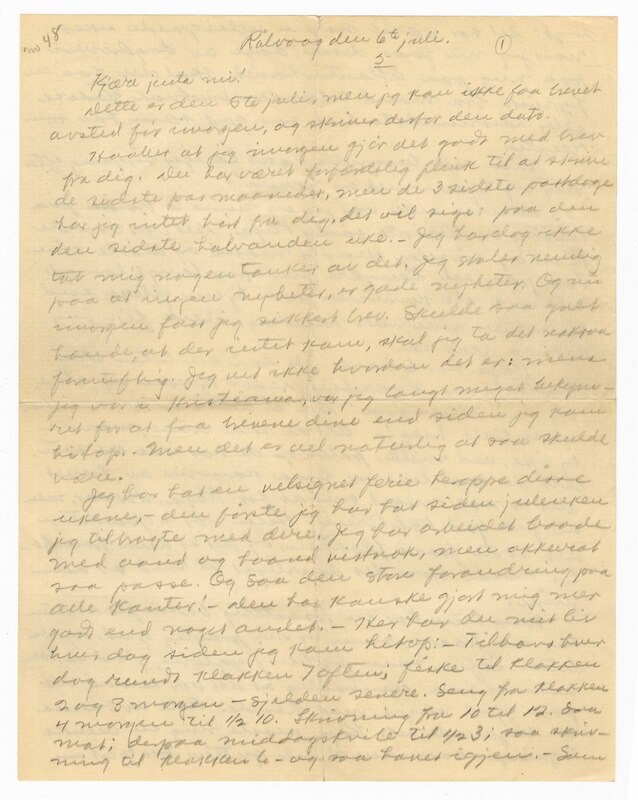 no 48
Råkvaag den 6te juli. 1
5
Kjære junta mi!
Dette er den 5te juli, men jeg kan ikke faa brevet
avsted før imorgen, og skriver derfor den dato.
Haaber at jeg imorgen gjør det godt med brev
fra dig. Du har været forfærdelig flink til at skrive
de sidste par maaneder, men de 3 sidste postdage
har jeg intet hørt fra dig, det vil sige: paa den
den sidste halvanden uke. – Jeg har dog ikke
tat mig nogen tanker av det. Jeg stoler nemlig
paa at ingen nyheter, er gode nyheter. Og nu
imorgen faar jeg sikkert brev. Skulde saa galt
hænde, at der intet kom, skal jeg ta det saksom
fornuftig. Jeg vet ikke hvordan det er: mens
jeg var i Kristiania, var jeg langt meget bekym-
ret for at faa brevene dine end siden jeg kom
hitop. – Men det er vel naturlig at saa skulde
være.
Jeg har hat en velsignet ferie heroppe disse
ukene, – den første jeg har hat siden juleuken
jeg tilbragte med dere. Jeg har arbeidet baade
med aand og haand vistnok, men akkurat
saa passe. Og saa den store forandring paa
alle kanter! – den har kanske gjort mig mer
godt end noget andet. – Her har du mit liv
hver dag siden jeg kom hitop: – Tilhavs hver
dag rundt klokken 7 aften; fiske til klokken
2 og 3 morgen – sjelden senere. Seng fra klokken
4 morgen til ½ 10. Skrivning fra 10 til 12. Saa
mat; derpaa middagskvile til ½ 3; saa skriv-
ning til klokken 6 – og saa havet igjen. – Som